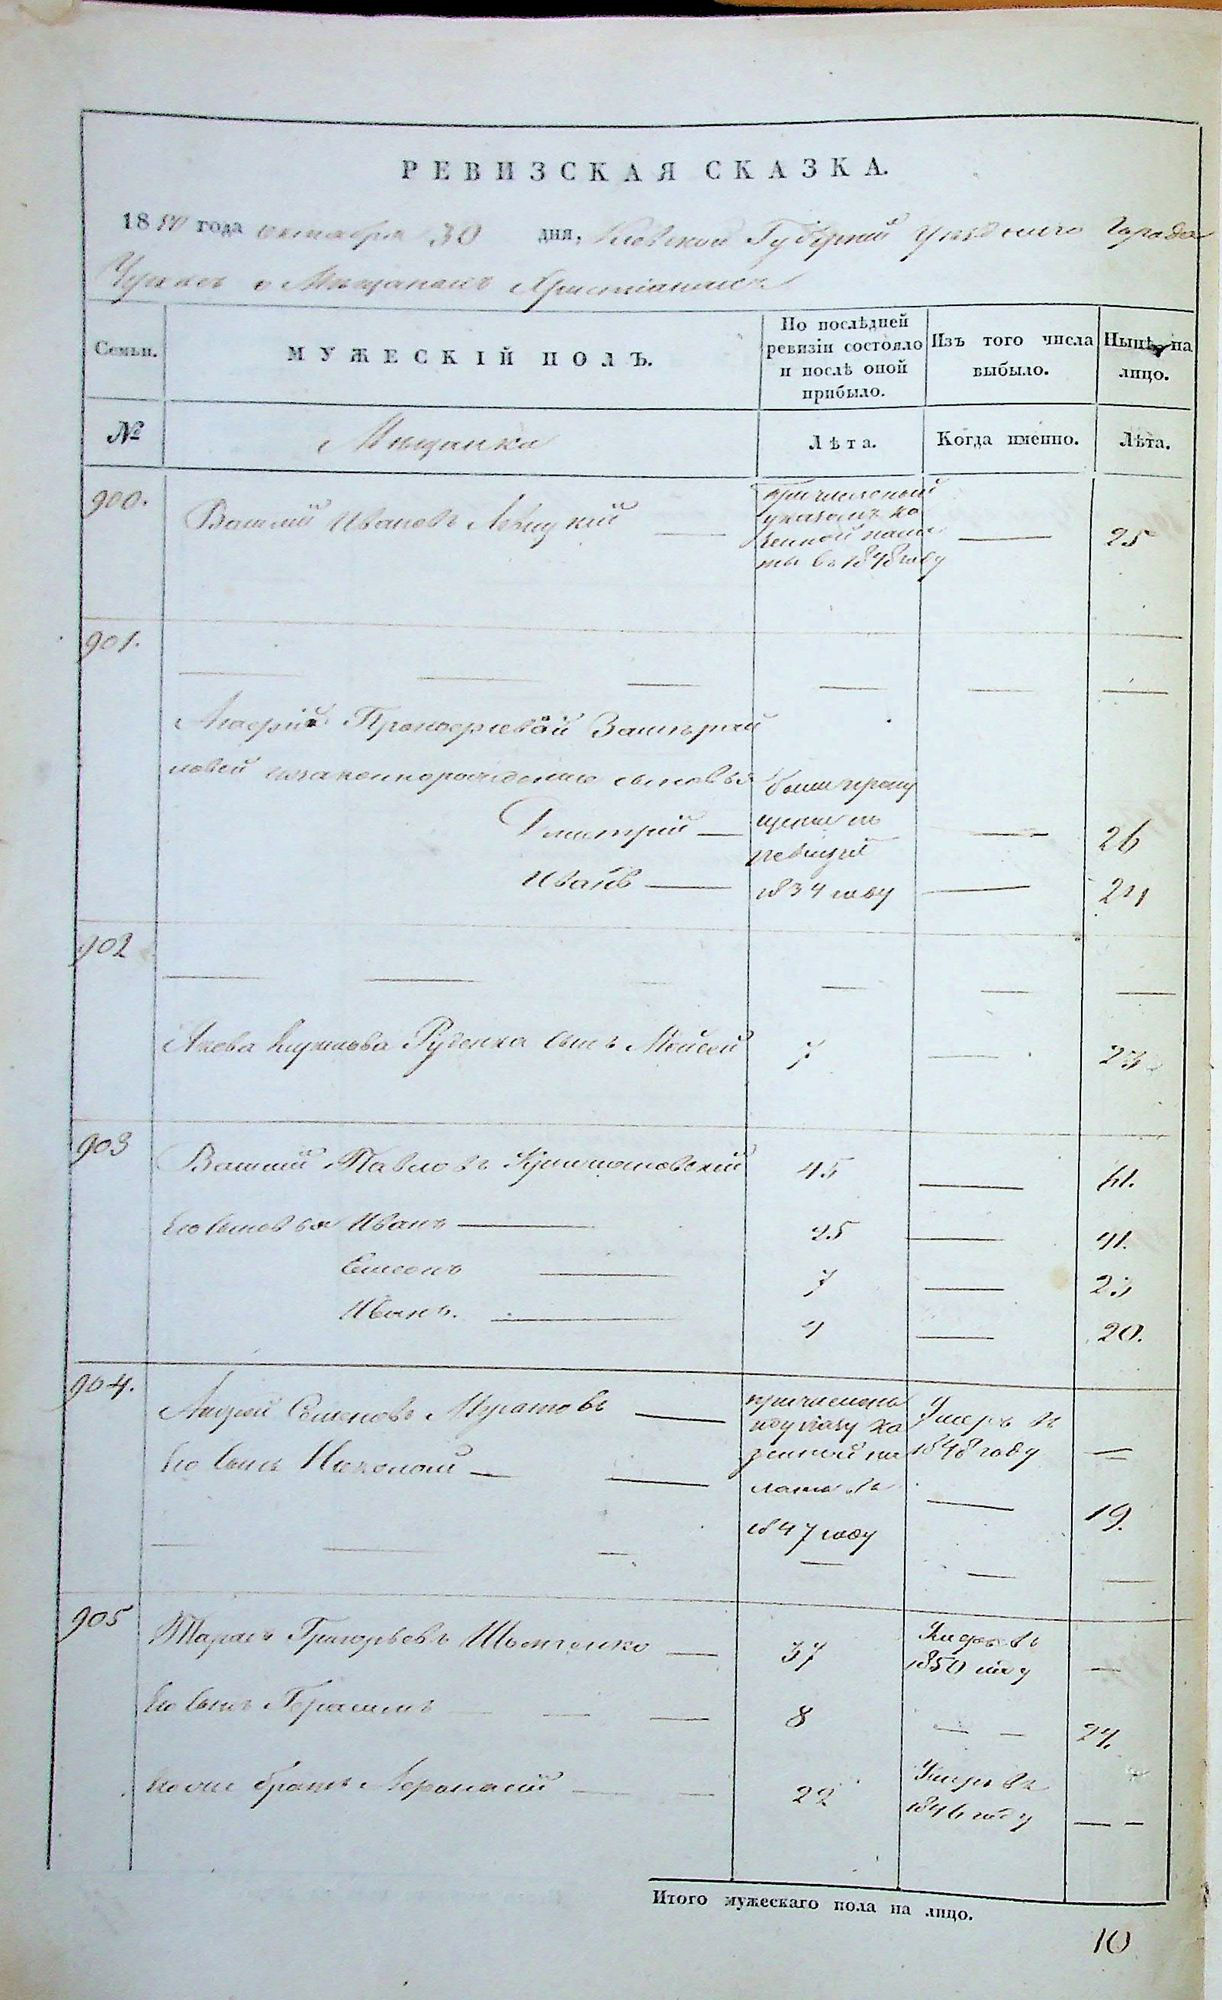 РЕВИЗСКАЯ СКАЗКА.
1850 года октября 30 дня, Киевской Губерніи Уѣзднаго Города
о Мѣщанахъ Христіанахъ
Семьи.
МУЖЕСКІЙ ПОЛЪ.
По послѣдней ревизіи состояло и послѣ оной прибыло.
Изъ того числа выбыло.
Нынѣ на лицо.
№
Лѣта.
Когда именно.
Лѣта.
900.
Василій Ивановъ Левицкій
причисленный
указомъ ка
зенной пала
ты въ 1848 году
25
901.
Прокофіевой
незаконнорожденные сыновья
Дмитрій
Иванъ
были пропу
щены въ
ревизій
1834 году
26
24
902
Якова Руденка сынъ Мойсей
7
23
903
Василій Павловъ
45
61.
Его сыновья Иванъ
25
41.
Семенъ
7
23
Иванъ.
4
20.
904.
Андрей Семеновъ Муратовъ
причислены
по указу ка
зенной па
латы въ
1847 году
Умеръ въ
1848 году
Его сынъ Николай
19.
905
Тарасъ Григорьевъ Шевченко
37
Умеръ въ
1850 году
Его сынъ Герасимъ
8
24.
Его же братъ Афонасій
22
Умеръ въ
1846 году
Итого мужескаго пола на лицо.
10